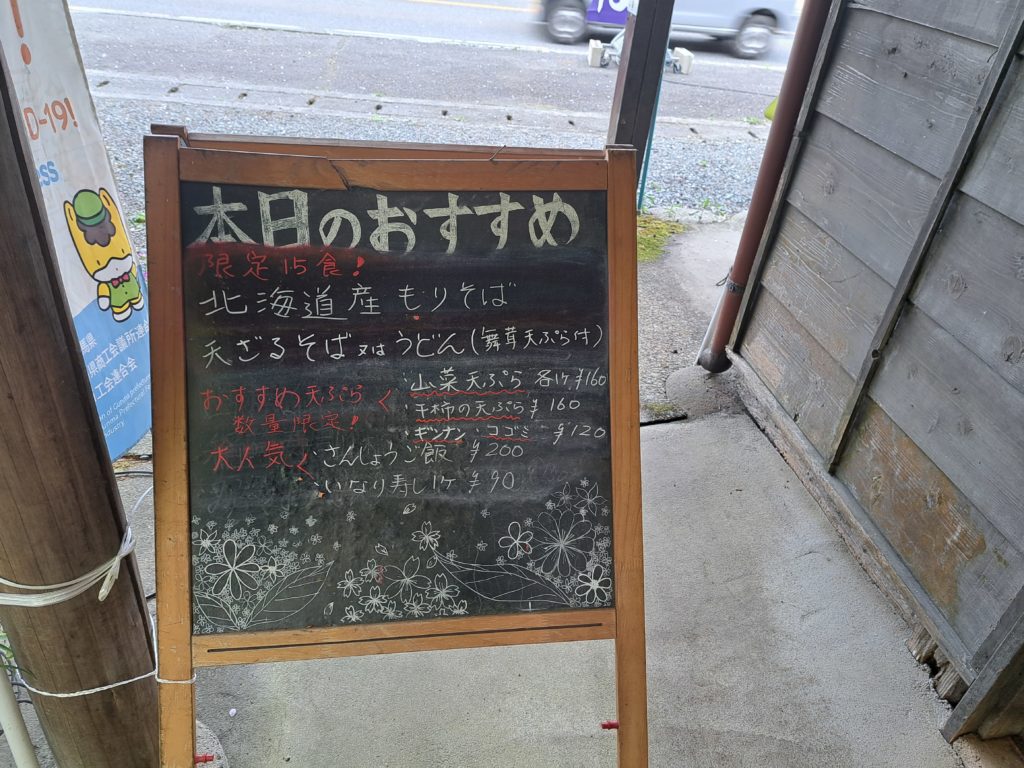 !
D-19!
ess
本日のおすすめ
限定15食!
北海道産 もりそば
天ざるそば又はうどん(舞茸天ぷら付)
おすすめ天ぷら
数量限定!
・山菜天ぷら 各1ケ ¥160
・干柿の天ぷら ¥160
・ギンナン コゴミ ¥120
大人気
・さんしょうご飯 ¥200
・いなり寿し1ケ ¥90
県商工会議所連合
工会連合会